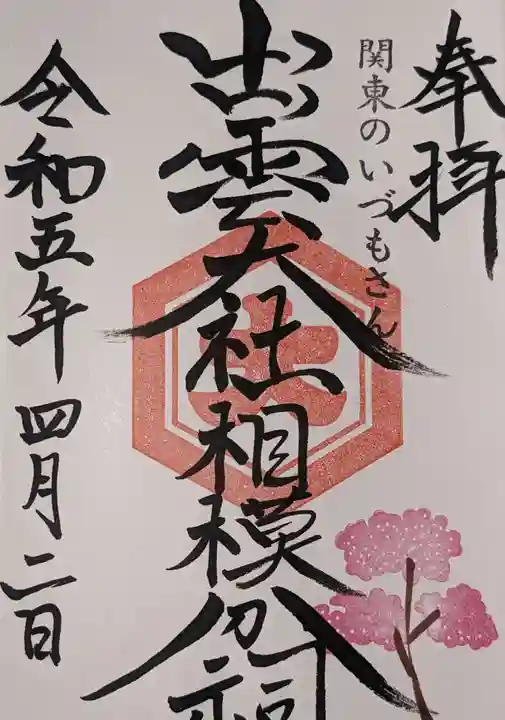 奉拝
関東のいづもさん
出雲大社相模分祠
令和五年四月二日
大